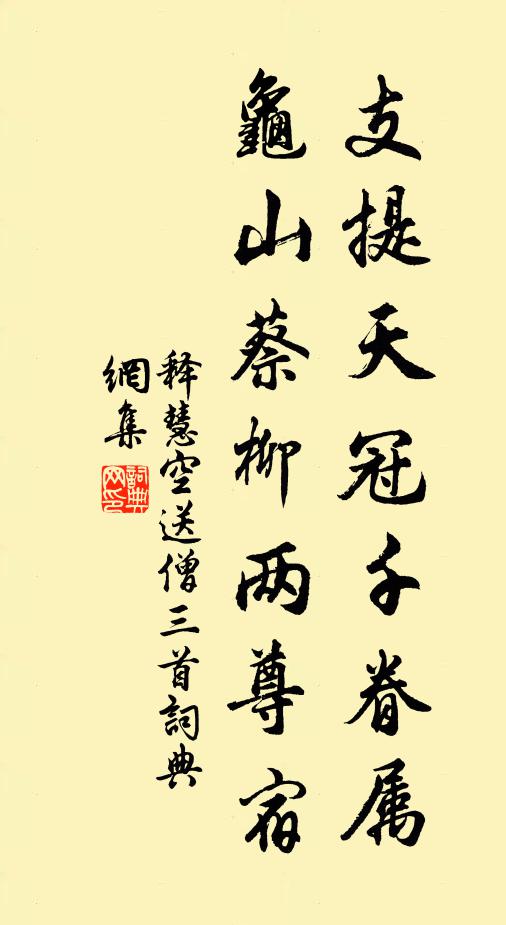 支提天冠千眷属
龜山蔡柳两尊宿
释慧空送僧三首詞典
網集
詞典
网印